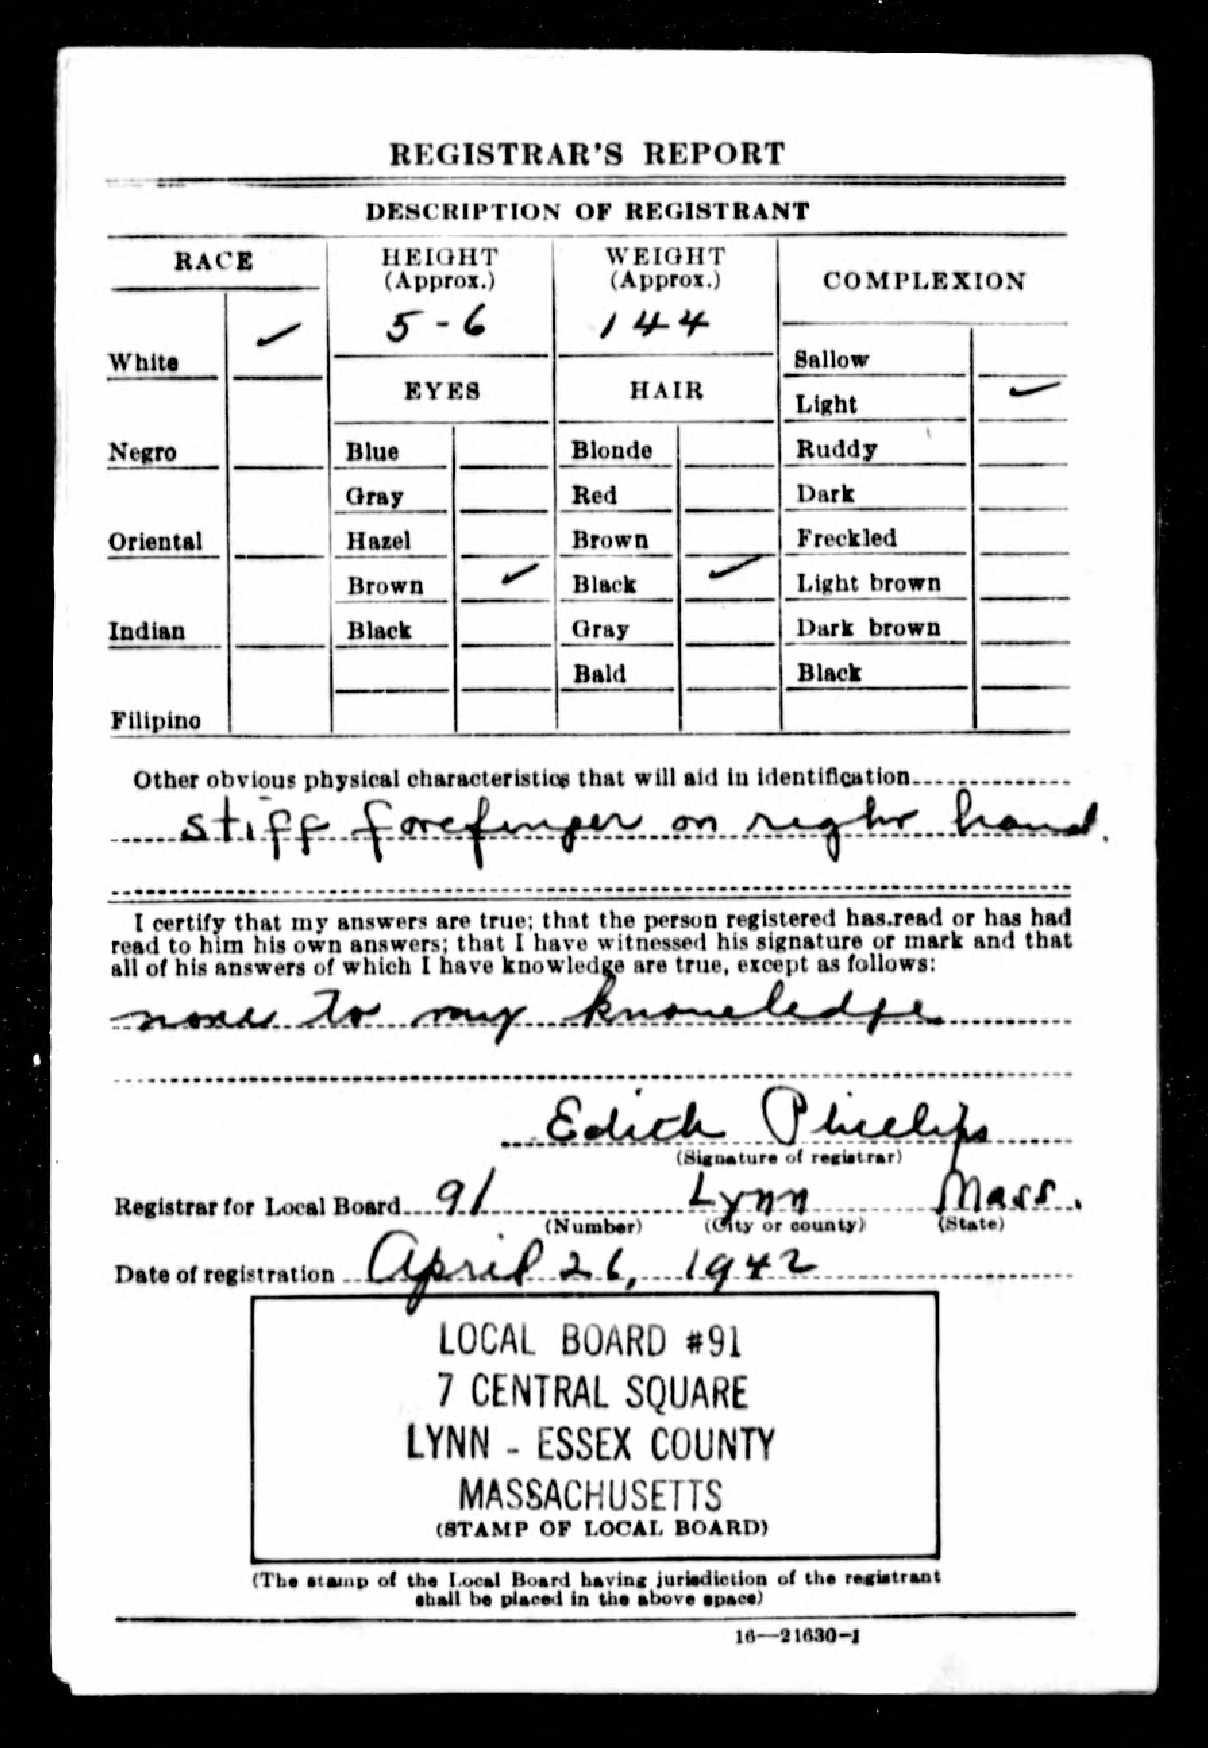 REGISTRAR'S REPORT
DESCRIPTION OF REGISTRANT
RACE
White ✓
Negro
Oriental
Indian
Filipino
HEIGHT
(Approx.)
5-6
EYES
Blue
Gray
Hazel
Brown ✓
Black
WEIGHT
(Approx.)
144
HAIR
Blonde
Red
Brown
Black ✓
Gray
Bald
COMPLEXION
Sallow
Light ✓
Ruddy
Dark
Freckled
Light brown
Dark brown
Black
Other obvious physical characteristics that will aid in identification
stiff forefinger on right hand.
I certify that my answers are true; that the person registered has read or has had
read to him his own answers; that I have witnessed his signature or mark and that
all of his answers of which I have knowledge are true, except as follows:
none to my knowledge
Edith Phillips
(Signature of registrar)
Registrar for Local Board 91 Lynn Mass.
(Number) (City or county) (State)
Date of registration April 26, 1942
LOCAL BOARD #91
7 CENTRAL SQUARE
LYNN - ESSEX COUNTY
MASSACHUSETTS
(STAMP OF LOCAL BOARD)
(The stamp of the Local Board having jurisdiction of the registrant
shall be placed in the above space)
16—21630-1